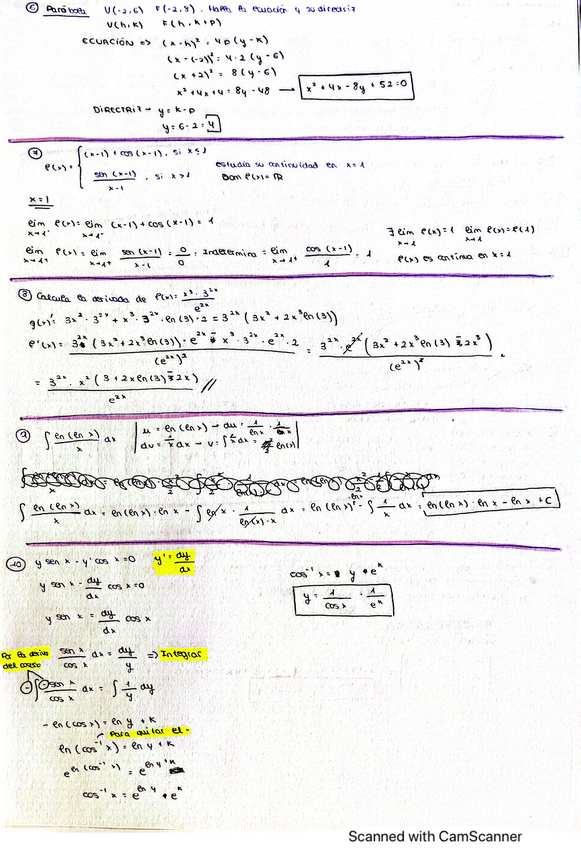 ⑥ Parábola V(-2,6) F(-2,8). Halla la ecuación y su directriz
V(h,k) F(h, k+p)
ECUACIÓN => (x-h)² = 4p(y-k)
(x-(-2))² = 4·2(y-6)
(x+2)² = 8(y-6)
x²+4x+4 = 8y-48 → x²+4x-8y+52=0
DIRECTRIZ → y = k-p
y = 6-2 = 4
⑦ f(x) = { (x-1)+cos(x-1), si x≤1
sen(x-1)/x-1, si x>1
estudia su continuidad en x=1
Dom f(x)=ℝ
x=1
lim x→1⁻ f(x) = lim x→1⁻ (x-1)+cos(x-1) = 1
lim x→1⁺ f(x) = lim x→1⁺ sen(x-1)/x-1 = 0/0 = Indetermina = lim x→1⁺ cos(x-1)/1 = 1
∃ lim x→1 f(x)=1 lim x→1 f(x)=f(1)
f(x) es continua en x=1
⑧ Calcula la derivada de f(x) = x³·3²ˣ/e²ˣ
g(x)' = 3x²·3²ˣ + x³·3²ˣ·ln(3)·2 = 3²ˣ(3x²+2x³ln(3))
f'(x) = 3²ˣ(3x²+2x³ln(3))·e²ˣ - x³·3²ˣ·e²ˣ·2/(e²ˣ)² = 3²ˣ·e²ˣ(3x²+2x³ln(3)-2x³)/(e²ˣ)² =
= 3²ˣ·x²(3+2xln(3)-2x)/e²ˣ //
⑨ ∫ ln(ln x)/x dx | u = ln(ln x) → du = 1/ln x · 1/x
dv = 1/x dx → v = ∫1/x dx = ln(x) |
∫ ln(ln x)/x dx = ln(ln x)·ln x - ∫ ln x · 1/ln(x)·x dx = ln(ln x)ˡⁿˣ - ∫ 1/x dx = ln(ln x)·ln x - ln x + C
⑩ y sen x - y' cos x = 0 y' = dy/dx
y sen x - dy/dx cos x = 0
y sen x = dy/dx cos x
Por la deriva del coseno
sen x/cos x dx = dy/y => Integrar
-∫ -sen x/cos x dx = ∫ 1/y dy
-ln(cos x) = ln y + K
Para quitar el -
ln(cos⁻¹ x) = ln y + K
e^ln(cos⁻¹ x) = e^ln y+K
cos⁻¹ x = e^ln y • e^K
cos⁻¹ x = y • e^K
y = 1/cos x · 1/e^K
Scanned with CamScanner